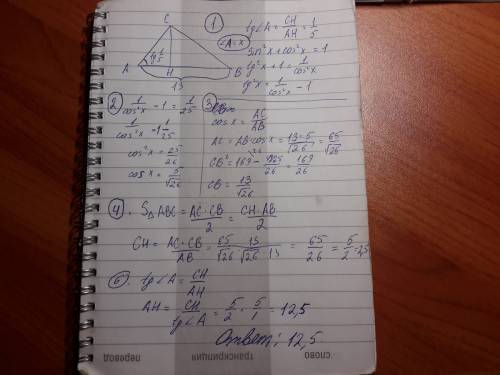 C
① tg∠A = CH/AH = 1/5
∠A=x
sin²x+cos²x = 1
tg²x+1 = 1/cos²x
tg²x = 1/cos²x - 1
A tg 1/5 H B
13
② 1/cos²x - 1 = 1/25
1/cos²x = 1 1/25
cos²x = 25/26
cos x = 5/√26
③ CB=
cos x = AC/AB
AC = AB·cos x = 13·5/√26 = 65/√26
CB² = 169 - 4225/26 = 169/26
CB = 13/√26
④. S△ABC = AC·CB/2 = CH·AB/2
CH = AC·CB/AB = 65/√26 · 13/√26 · 13 = 65/26 = 5/2 = 2,5
⑥. tg∠A = CH/AH
AH = CH/tg∠A = 5/2 · 5/1 = 12,5
Ответ: 12,5.
слово транскрипция перевод